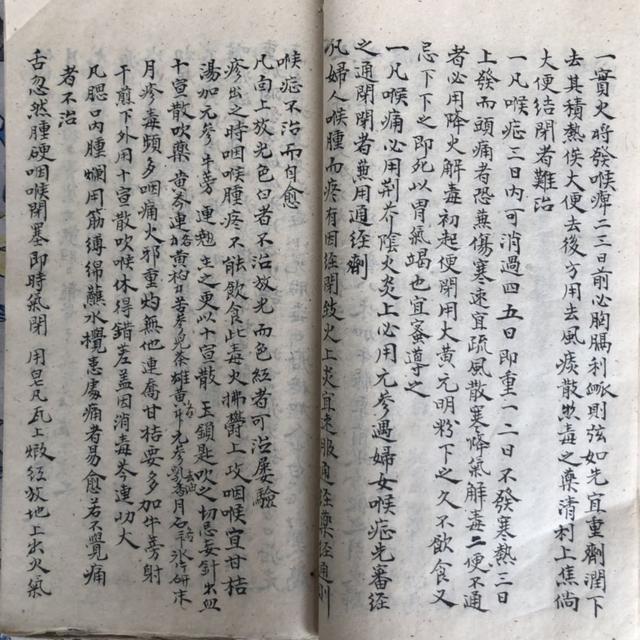 一實火將發喉痺二三日前必胸膈利脉則弦如先宜重劑潤下
去其積熱俟大便去後方用去風痰散熱毒之藥清村上焦倘
大便結閉者難治
一凡喉症三日內可消過四五日即重一二日不發寒熱三日
上發而頭痛者恐蕪傷寒速宜疏風散寒降氣解毒二便不通
者必用降火解毒初起便閉用大黃元明粉下之久不飲食又
忌下下之即死以胃氣竭也宜蜜導之
一凡喉痛必用荆芥陰火炎上必用元參遇婦女喉症先審經
之通閉閉者蕪用通经劑
凡婦人喉腫而疼有因经閉致火上炎宜速服通经藥经通則
喉症不治而自愈
凡面上放光色白者不治放光而色红者可治屡驗
疹出之時咽喉腫疼不能飲食此毒火拂欝上攻咽喉宜甘桔
湯加元參牛蒡連翘主之更以十宣散玉鎖匙吹之切忌妄針出血
十宣散吹藥黄芩連各黄柏苦參兒茶雄黄元參乳香月石冰研末
月疹毒頻多咽痛火邪重灼無他連喬甘桔要多加牛蒡射
干煎下外用十宣散吹喉休得錯差盖因消毒芩連功大
凡腮口內腫爛用筋縛綿蘸水攪患處痛者易愈若不覺痛
者不治
舌忽然腫硬咽喉閉塞即時氣閉 用皂凡瓦上煅红放地上出火氣